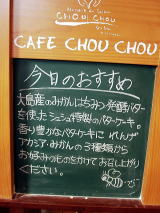 CHOU CHOU
CAFE CHOU CHOU
今日のおすすめ
大島産のみかんはちみつ発酵バター
を使ったシュシュ特製のバターケーキ。
香り豊かなバターケーキに れんげ
アカシア・みかんの3種類から
お好みのものをかけて お召し上がり
ください。